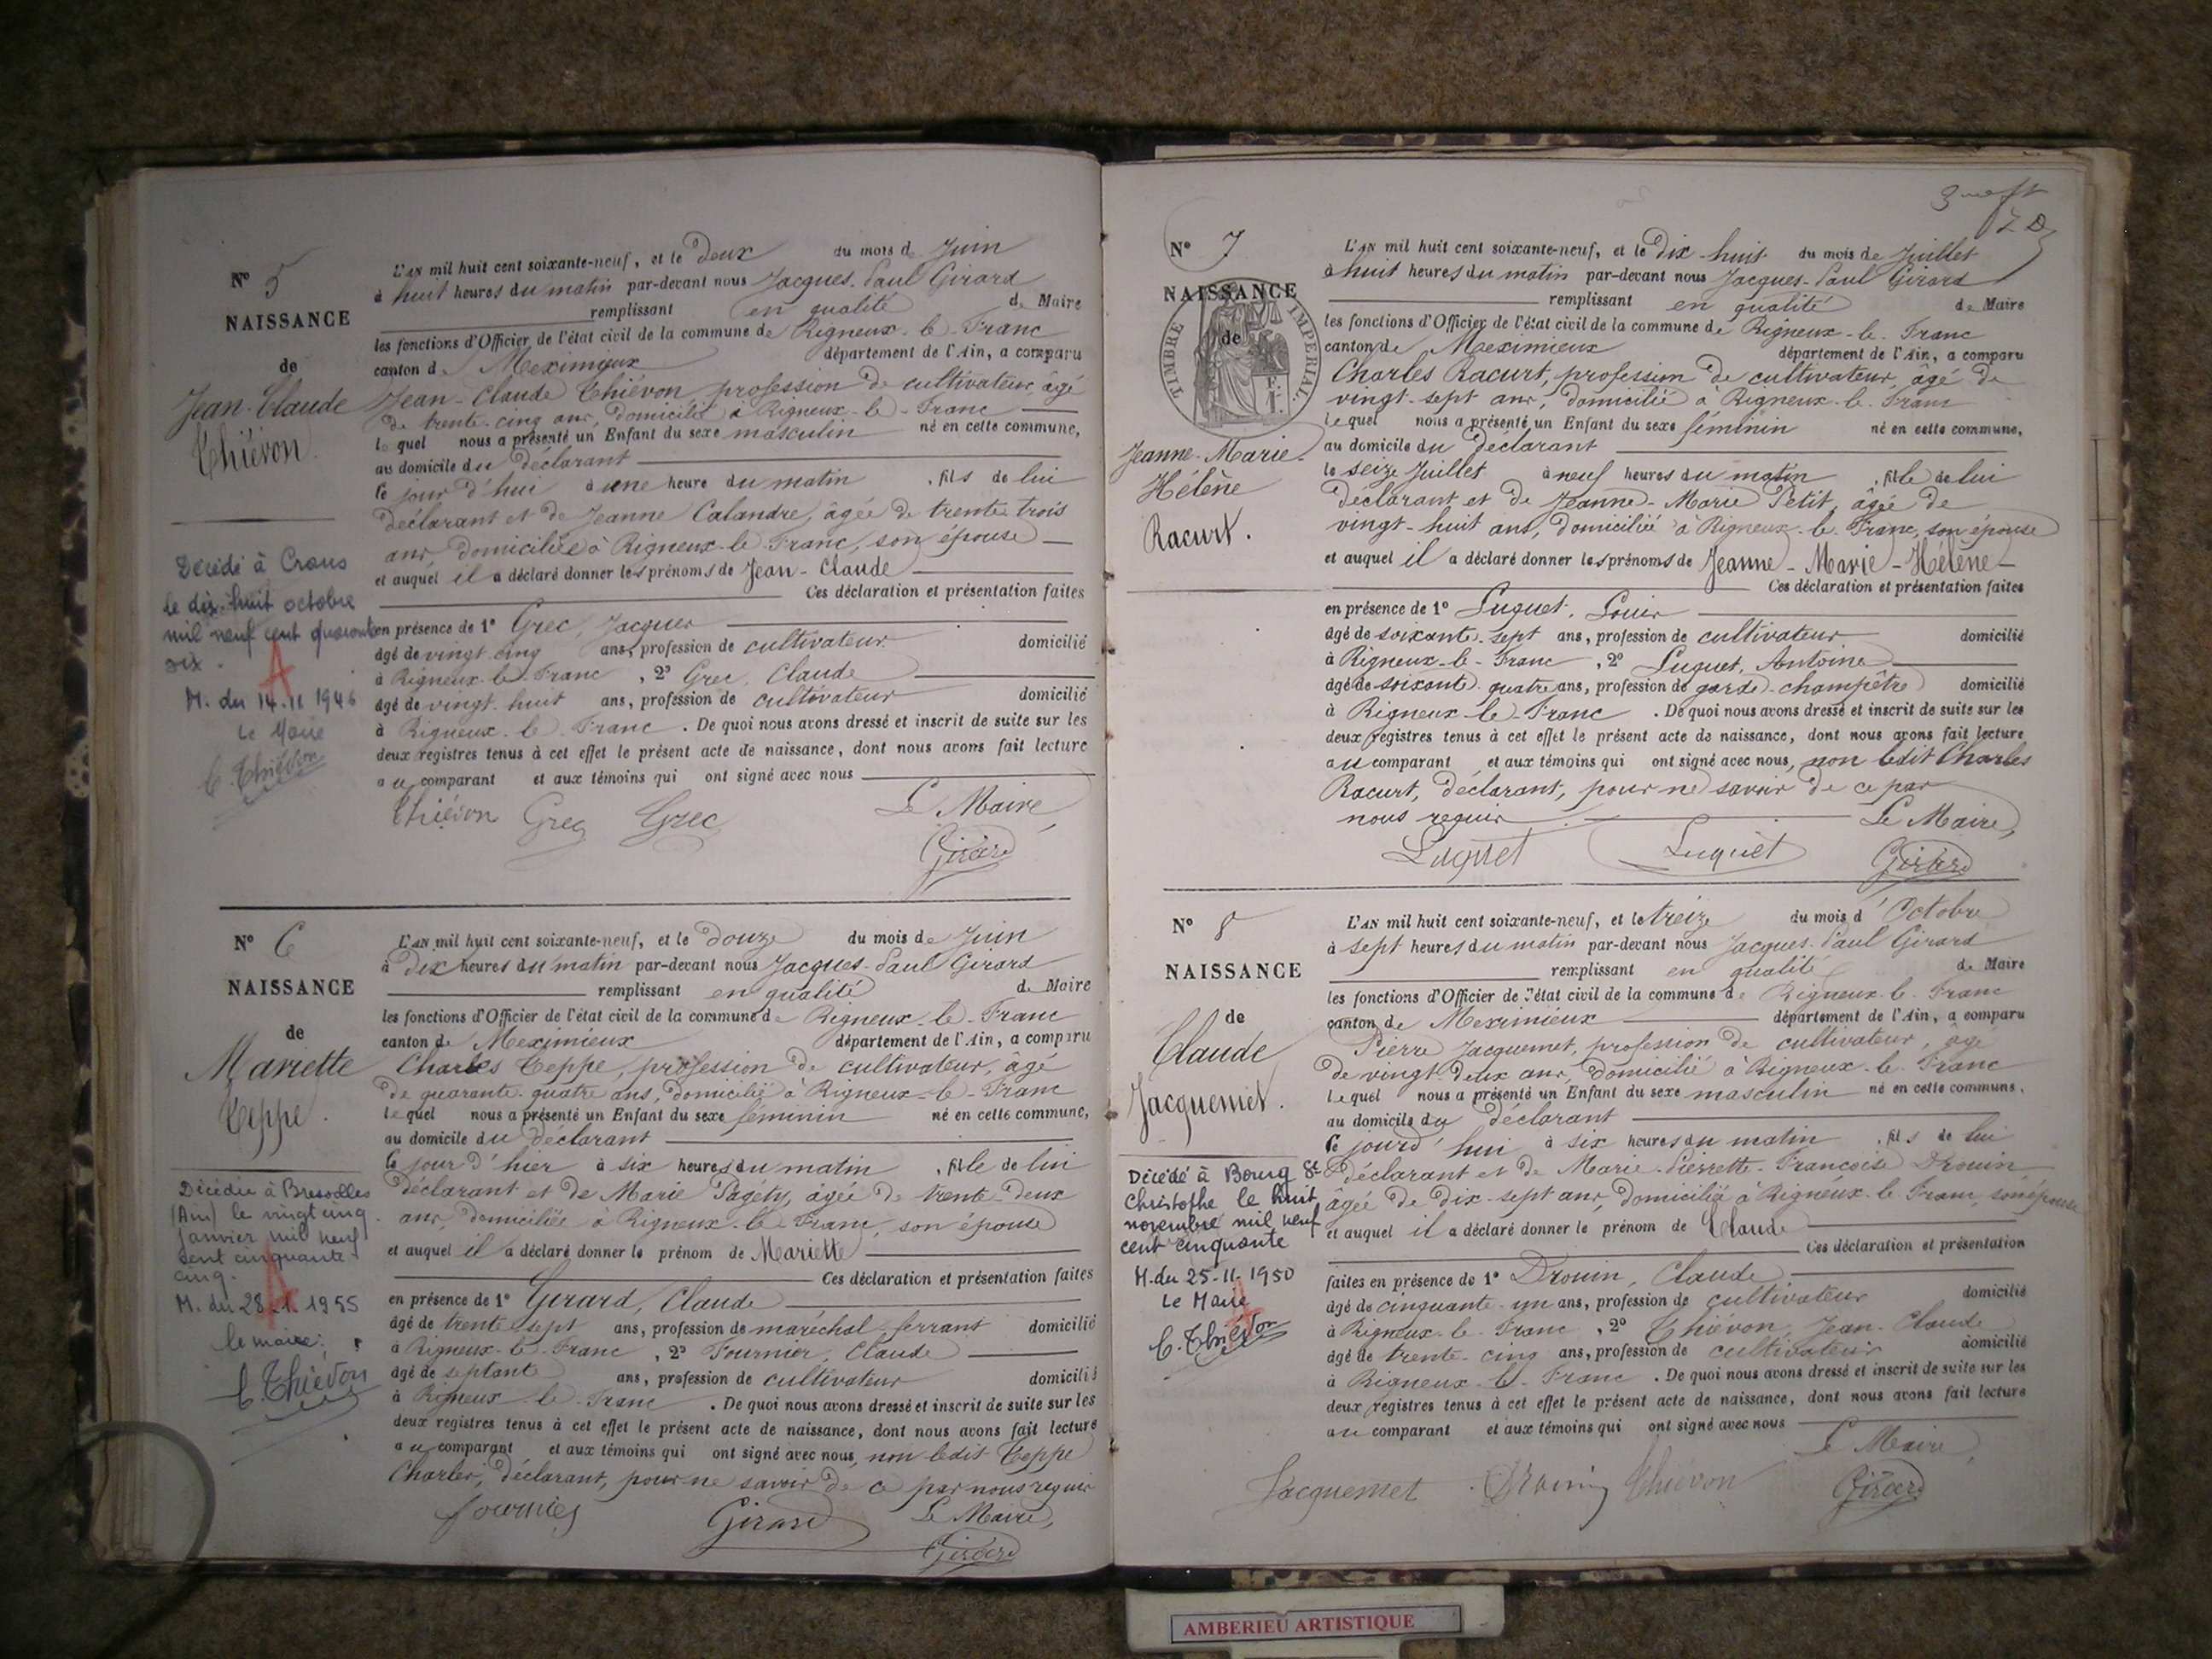 N° 5
NAISSANCE
de
Jean-Claude
Thiévon.
Décédé à Crans
le dix-huit octobre
mil neuf cent quarante
six.
M. du 14.11 1946
Le Maire
C. Thiévon
L'AN mil huit cent soixante-neuf, et le Deux du mois de Juin
à huit heures du matin par-devant nous Jacques-Paul Girard
remplissant en qualité de Maire
les fonctions d'Officier de l'état civil de la commune de Rigneux-le-Franc
canton de Meximieux département de l'Ain, a comparu
Jean-Claude Thiévon, profession de cultivateur, âgé
de trente-cinq ans, domicilié à Rigneux-le-Franc
lequel nous a présenté un Enfant du sexe masculin né en cette commune,
au domicile du déclarant
ce jour d'hui à une heure du matin, fils de lui
déclarant et de Jeanne Calandre, âgée de trente-trois
ans, domiciliée à Rigneux-le-Franc, son épouse
et auquel il a déclaré donner les prénoms de Jean-Claude
Ces déclaration et présentation faites
en présence de 1° Grec, Jacques
âgé de vingt-cinq ans, profession de cultivateur domicilié
à Rigneux-le-Franc, 2° Grec, Claude
âgé de vingt-huit ans, profession de cultivateur domicilié
à Rigneux-le-Franc. De quoi nous avons dressé et inscrit de suite sur les
deux registres tenus à cet effet le présent acte de naissance, dont nous avons fait lecture
au comparant et aux témoins qui ont signé avec nous
Le Maire,
Thiévon Grec Grec
Girard
N° 6
NAISSANCE
de
Mariette
Teppe.
Décédée à Bressolles
(Ain) le vingt cinq
janvier mil neuf
cent cinquante
cinq.
M. du 28.1.1955
le maire:
C. Thiévon
L'AN mil huit cent soixante-neuf, et le douze du mois de Juin
à Dix heures du matin par-devant nous Jacques-Paul Girard
remplissant en qualité de Maire
les fonctions d'Officier de l'état civil de la commune de Rigneux-le-Franc
canton de Meximieux département de l'Ain, a comparu
Charles Teppe, profession de cultivateur, âgé
de quarante-quatre ans, domicilié à Rigneux-le-Franc
lequel nous a présenté un Enfant du sexe féminin né en cette commune,
au domicile du déclarant
le jour d'hier à six heures du matin, fille de lui
déclarant et de Marie Pagéty, âgée de trente-deux
ans, domiciliée à Rigneux-le-Franc, son épouse
et auquel il a déclaré donner le prénom de Mariette
Ces déclaration et présentation faites
en présence de 1° Girard, Claude
âgé de trente-sept ans, profession de maréchal-ferrant domicilié
à Rigneux-le-Franc, 2° Fournier, Claude
âgé de septante ans, profession de cultivateur domicilié
à Rigneux-le-Franc. De quoi nous avons dressé et inscrit de suite sur les
deux registres tenus à cet effet le présent acte de naissance, dont nous avons fait lecture
au comparant et aux témoins qui ont signé avec nous, non ledit Teppe
Charles, déclarant, pour ne savoir de ce par nous requis
Fournier Girard Le Maire,
Girard
N° 7
NAISSANCE
de
TIMBRE IMPERIAL
Jeanne-Marie-
Hélène
Racurt.
L'AN mil huit cent soixante-neuf, et le Dix-huit du mois de Juillet
à huit heures du matin par-devant nous Jacques-Paul Girard
remplissant en qualité de Maire
les fonctions d'Officier de l'état civil de la commune de Rigneux-le-Franc
canton de Meximieux département de l'Ain, a comparu
Charles Racurt, profession de cultivateur, âgé de
vingt-sept ans, domicilié à Rigneux-le-Franc
lequel nous a présenté un Enfant du sexe féminin né en cette commune,
au domicile du déclarant
le seize Juillet à neuf heures du matin, fille de lui
déclarant et de Jeanne-Marie Petit, âgée de
vingt-huit ans, domiciliée à Rigneux-le-Franc, son épouse
et auquel il a déclaré donner les prénoms de Jeanne-Marie-Hélène
Ces déclaration et présentation faites
en présence de 1° Luquet, Louis
âgé de soixante-sept ans, profession de cultivateur domicilié
à Rigneux-le-Franc, 2° Luquet, Antoine
âgé de soixante-quatre ans, profession de garde-champêtre domicilié
à Rigneux-le-Franc. De quoi nous avons dressé et inscrit de suite sur les
deux registres tenus à cet effet le présent acte de naissance, dont nous avons fait lecture
au comparant et aux témoins qui ont signé avec nous, non ledit Charles
Racurt, déclarant, pour ne savoir de ce par
nous requis Le Maire,
Luquet Luquet Girard
N° 8
NAISSANCE
de
Claude
Jacquemet.
Décédé à Bourg St
Christophe le huit
novembre mil neuf
cent cinquante
M. du 25-11-1950
Le Maire
C. Thiévon
L'AN mil huit cent soixante-neuf, et le treize du mois d'Octobre
à sept heures du matin par-devant nous Jacques-Paul Girard
remplissant en qualité de Maire
les fonctions d'Officier de l'état civil de la commune de Rigneux-le-Franc
canton de Meximieux département de l'Ain, a comparu
Pierre Jacquemet, profession de cultivateur, âgé
de vingt-deux ans, domicilié à Rigneux-le-Franc
lequel nous a présenté un Enfant du sexe masculin né en cette commune,
au domicile du déclarant
ce jourd'hui à six heures du matin, fils de lui
déclarant et de Marie-Pierrette-Françoise Drouin
âgée de dix-sept ans, domiciliée à Rigneux-le-Franc, son épouse
et auquel il a déclaré donner le prénom de Claude
Ces déclaration et présentation
faites en présence de 1° Drouin, Claude
âgé de cinquante-un ans, profession de cultivateur domicilié
à Rigneux-le-Franc, 2° Thiévon, Jean-Claude
âgé de trente-cinq ans, profession de cultivateur domicilié
à Rigneux-le-Franc. De quoi nous avons dressé et inscrit de suite sur les
deux registres tenus à cet effet le présent acte de naissance, dont nous avons fait lecture
au comparant et aux témoins qui ont signé avec nous
Le Maire,
Jacquemet Drouin Thiévon Girard
AMBERIEU ARTISTIQUE